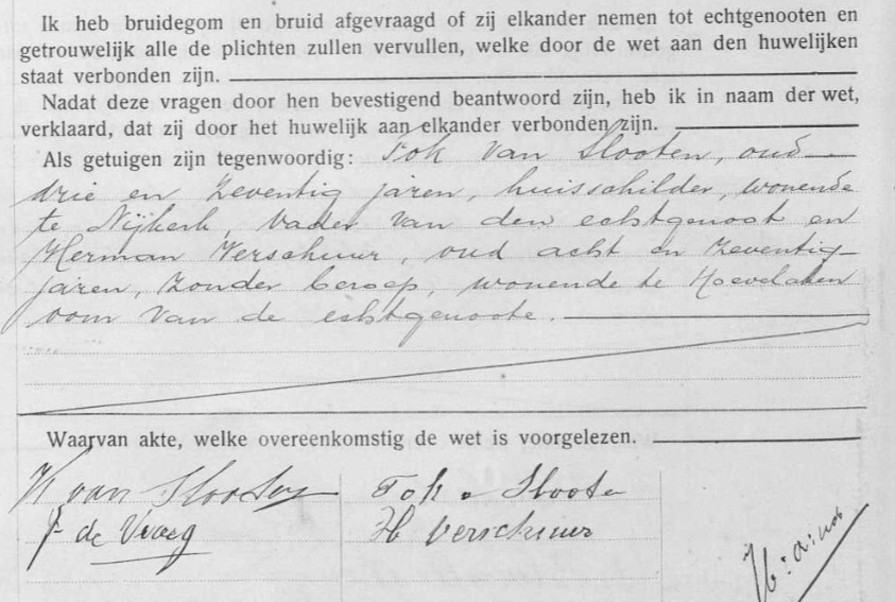 Ik heb bruidegom en bruid afgevraagd of zij elkander nemen tot echtgenooten en
getrouwelijk alle de plichten zullen vervullen, welke door de wet aan den huwelijken
staat verbonden zijn.
Nadat deze vragen door hen bevestigend beantwoord zijn, heb ik in naam der wet,
verklaard, dat zij door het huwelijk aan elkander verbonden zijn.
Als getuigen zijn tegenwoordig: Fok van Slooten, oud
drie en zeventig jaren, huisschilder, wonende
te Nijkerk, vader van den echtgenoot en
Herman Verschuur, oud acht en zeventig
jaren, zonder beroep, wonende te Hoevelaken
oom van de echtgenoote.
Waarvan akte, welke overeenkomstig de wet is voorgelezen.
van Slooten Fok v Slooten
de Vroeg H Verschuur